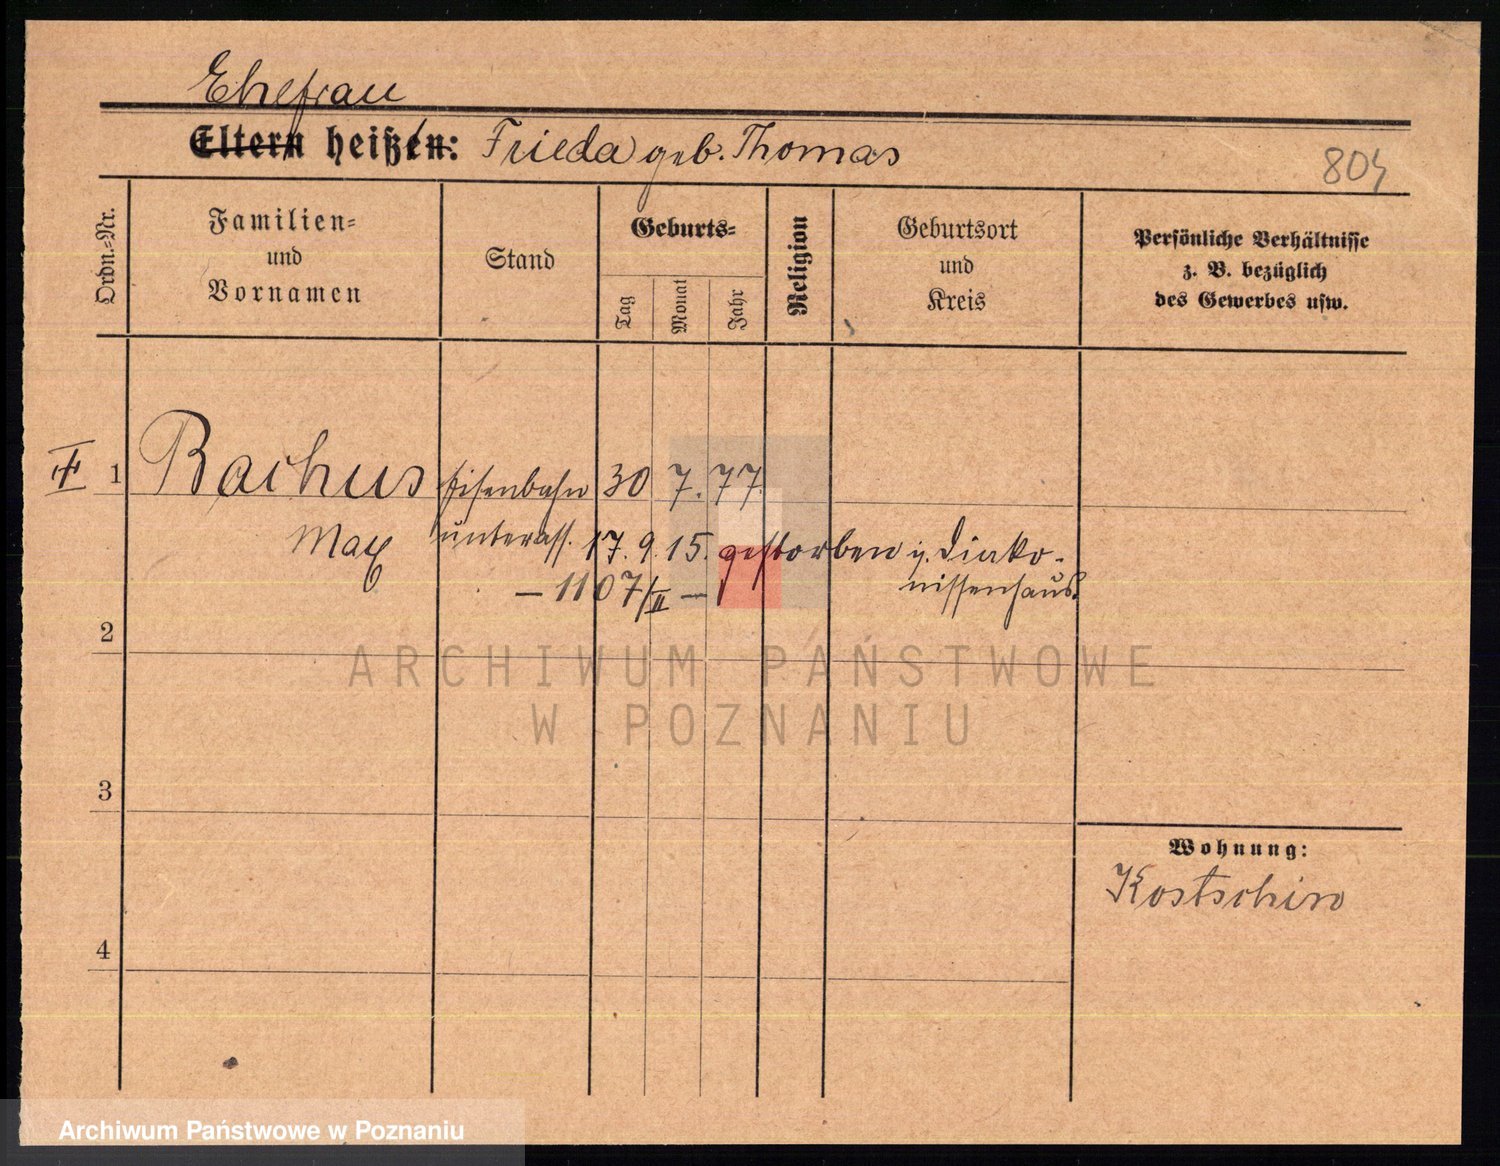 Ehefrau
Eltern heißen: Frieda geb. Thomas
804
Ordn.-Nr.
Familien-
und
Vornamen
Stand
Geburts-
Tag
Monat
Jahr
Religion
Geburtsort
und
Kreis
Persönliche Verhältnisse
z. B. bezüglich
des Gewerbes usw.
1 Bachus Eisenbahn 30 7. 77.
Max unterass. 17. 9. 15. gestorben i. Diako-
– 1107/II – nissenhaus.
2
ARCHIWUM PAŃSTWOWE
W POZNANIU
3
Wohnung:
Kostschin
4
Archiwum Państwowe w Poznaniu